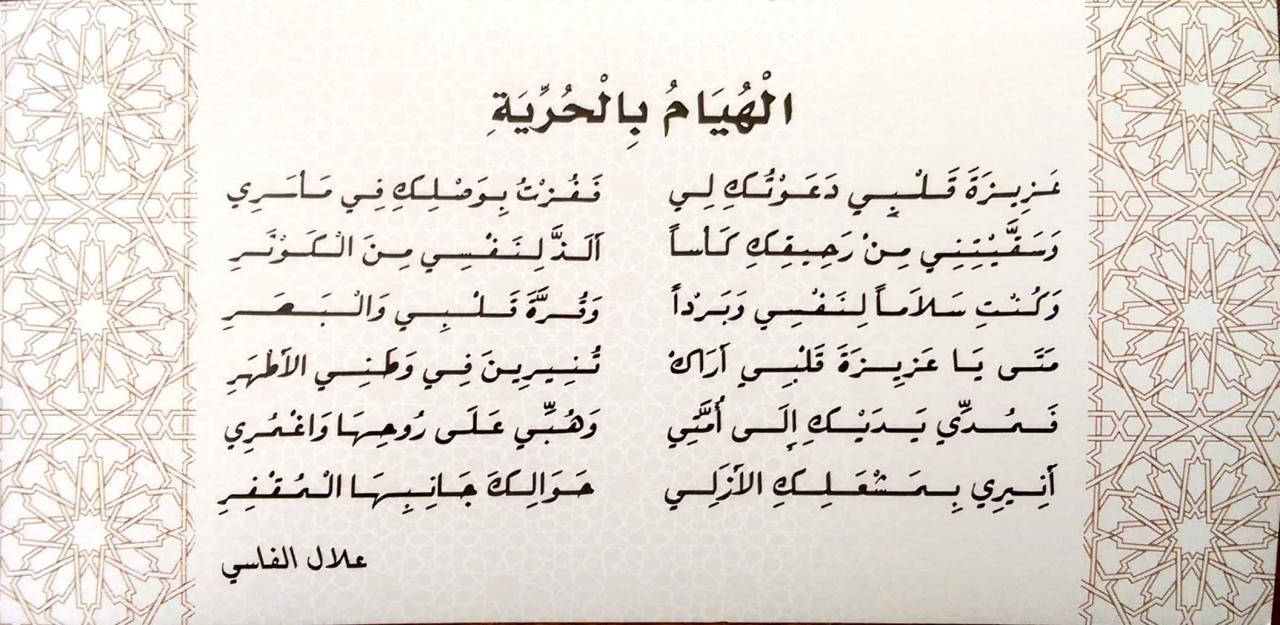 الْهُيَامُ بِالْحُرِّيَةِ
عَزِيزَةَ قَلْبِي دَعَوْتُكِ لِي فَفُزْتُ بِوَصْلِكِ فِي مَأْسَرِي
وَسَقَّيْتِنِي مِنْ رَحِيقِكِ كَأْساً أَلَذَّ لِنَفْسِي مِنَ الْكَوْثَرِ
وَكُنْتِ سَلاَماً لِنَفْسِي وَبَرْداً وَقُرَّةَ قَلْبِي وَالْبَصَرِ
مَتَى يَا عَزِيزَةَ قَلْبِي أَرَاكْ تُنِيرِينَ فِي وَطَنِي الأَطْهَرِ
فَمُدِّي يَدَيْكِ إِلَى أُمَّتِي وَهُبِّي عَلَى رُوحِهَا وَاغْمُرِي
أَنِيرِي بِمَشْعَلِكِ الأَزَلِي حَوَالِكَ جَانِبِهَا الْمُقْفِرِ
علال الفاسي